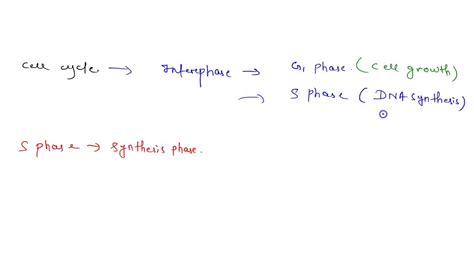 cell cycle → Interephase → G1 phase. (cell growth)
→ S phase (DNA synthesis)
S phase → synthesis phase.